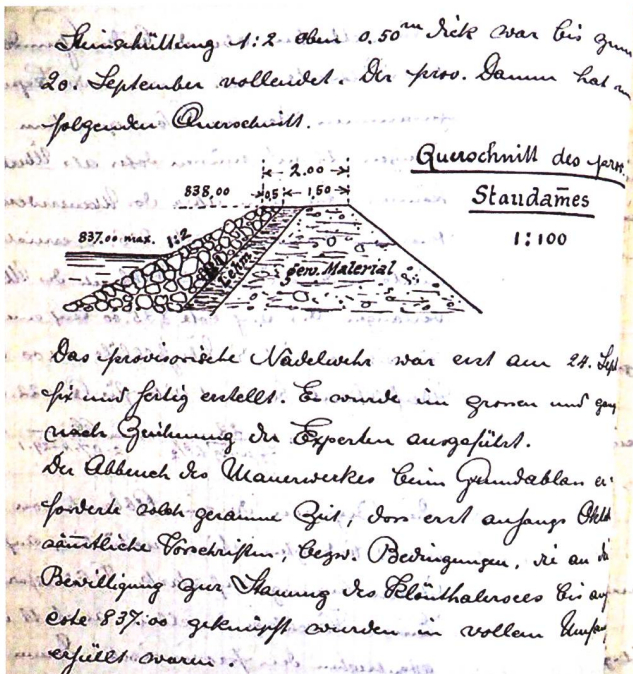 Steinschüttung 1:2 oben 0.50 m dick war bis zum
20. September vollendet. Der prov. Damm hat
folgenden Querschnitt.
Querschnitt des prov.
Staudam̄es
1:100
2.00
838,00
0,5
1,50
837.00 max.
1:2
Lehm
gew. Material
Das provisorische Nadelwehr war erst am 24. Sept
fix und fertig erstellt. Es wurde im grossen und ganz
nach Zeichnung der Experten ausgeführt.
Der Abbruch des Mauerwerkes beim Grundablass er-
forderte solch geraume Zeit, dass erst anfangs Okto
sämtliche Vorschriften, bezw. Bedingungen, die an die
Bewilligung zur Stauung des Klönthalersees bis auf
cote 837.00 geknüpft wurden in vollem Umfang
erfüllt waren.